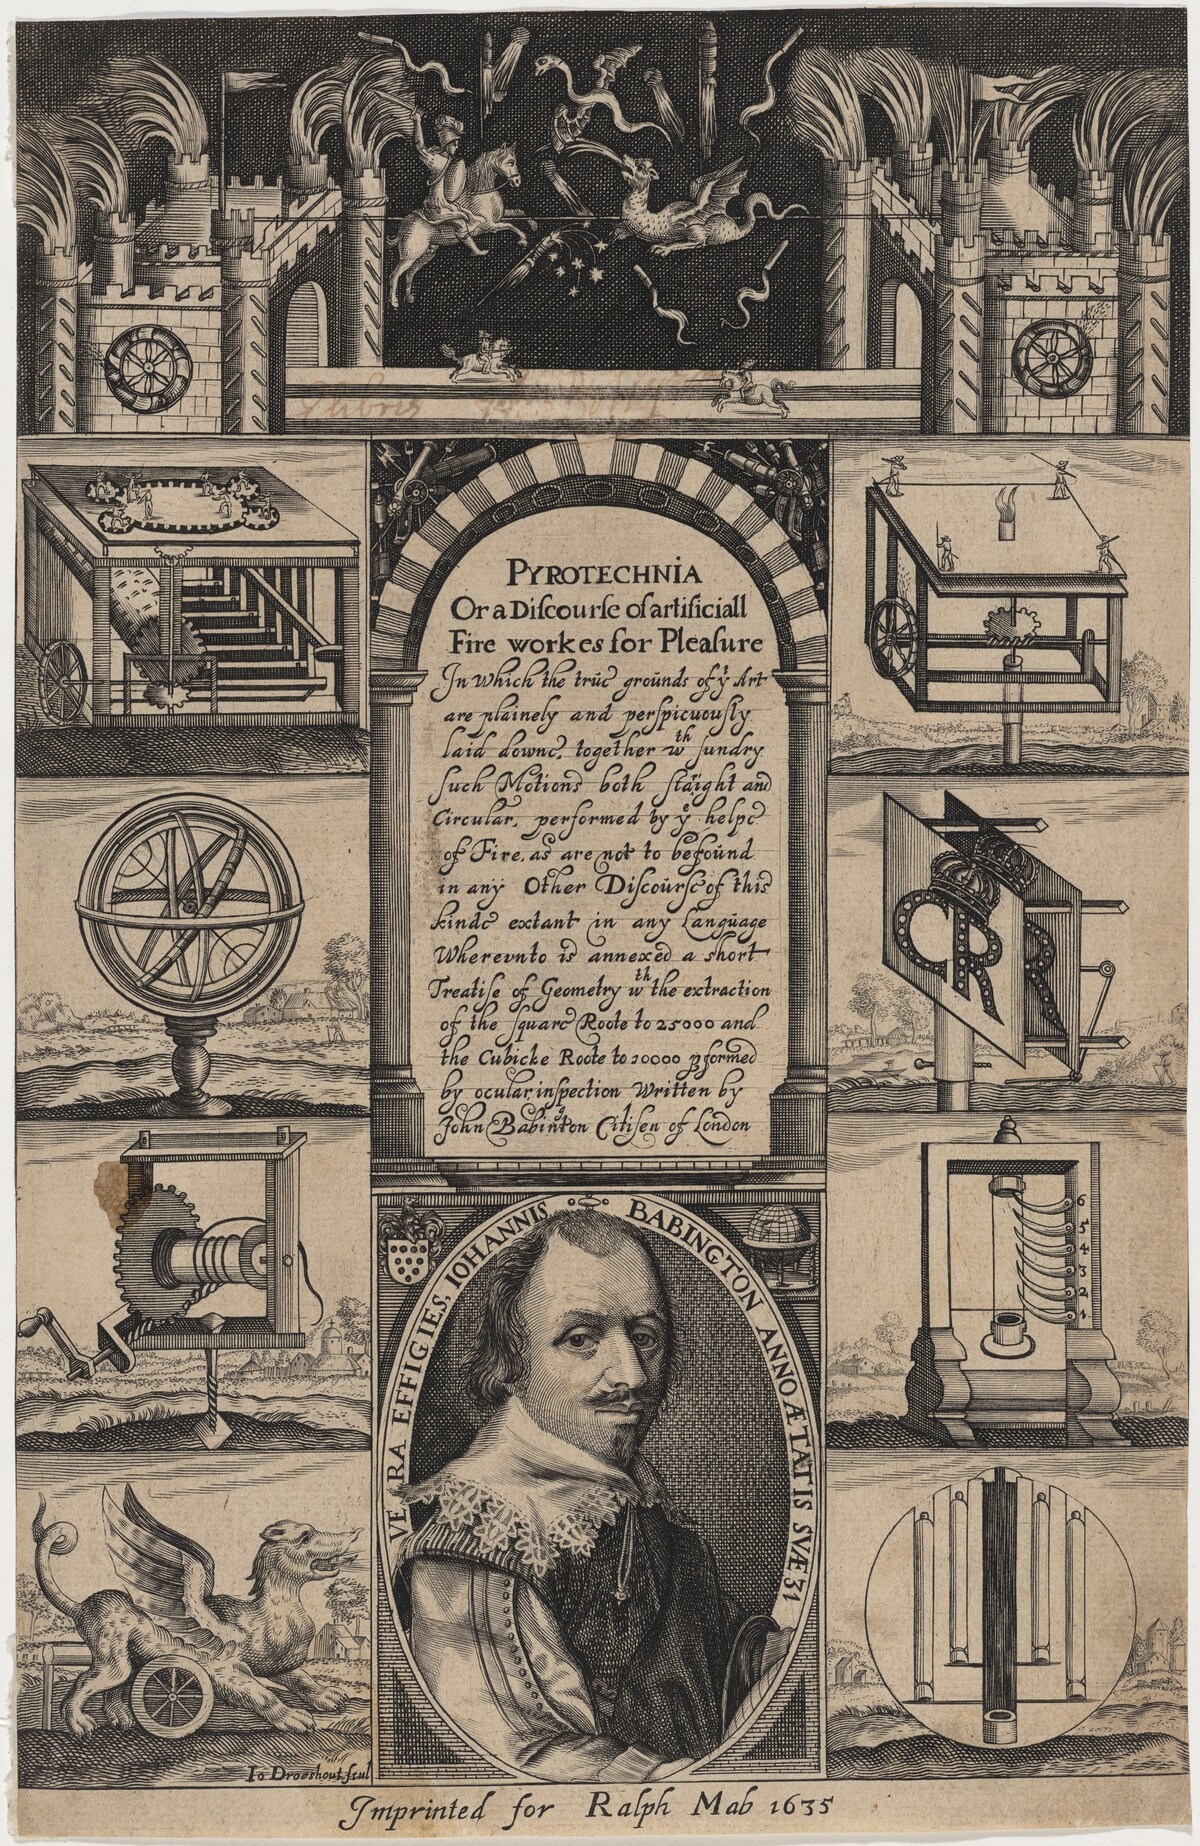 Ex libris
PYROTECHNIA
Or a Discourse of artificiall
Fire workes for Pleasure
In which the true grounds of yͤ Art
are plainely and perspicuously
laid downe, together wᵗʰ sundry
such Motions both staight and
Circular, performed by yͤ helpe
of Fire, as are not to be found
in any Other Discourse of this
kinde extant in any Language
Wherevnto is annexed a short
Treatise of Geometry wᵗʰ the extraction
of the square Roote to 25000 and
the Cubicke Roote to 10000 pformed
by ocular inspection Written by
John Babington Citisen of London
CR
R
6
5
4
3
2
1
VERA EFFIGIES, IOHANNIS BABINGTON ANNO ÆTATIS SVÆ 31
Io Droeshout scul
Imprinted for Ralph Mab 1635